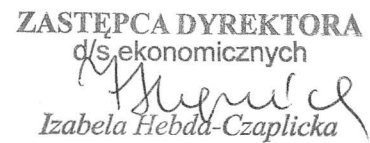 ZASTĘPCA DYREKTORA
d/s ekonomicznych
Izabela Hebda-Czaplicka